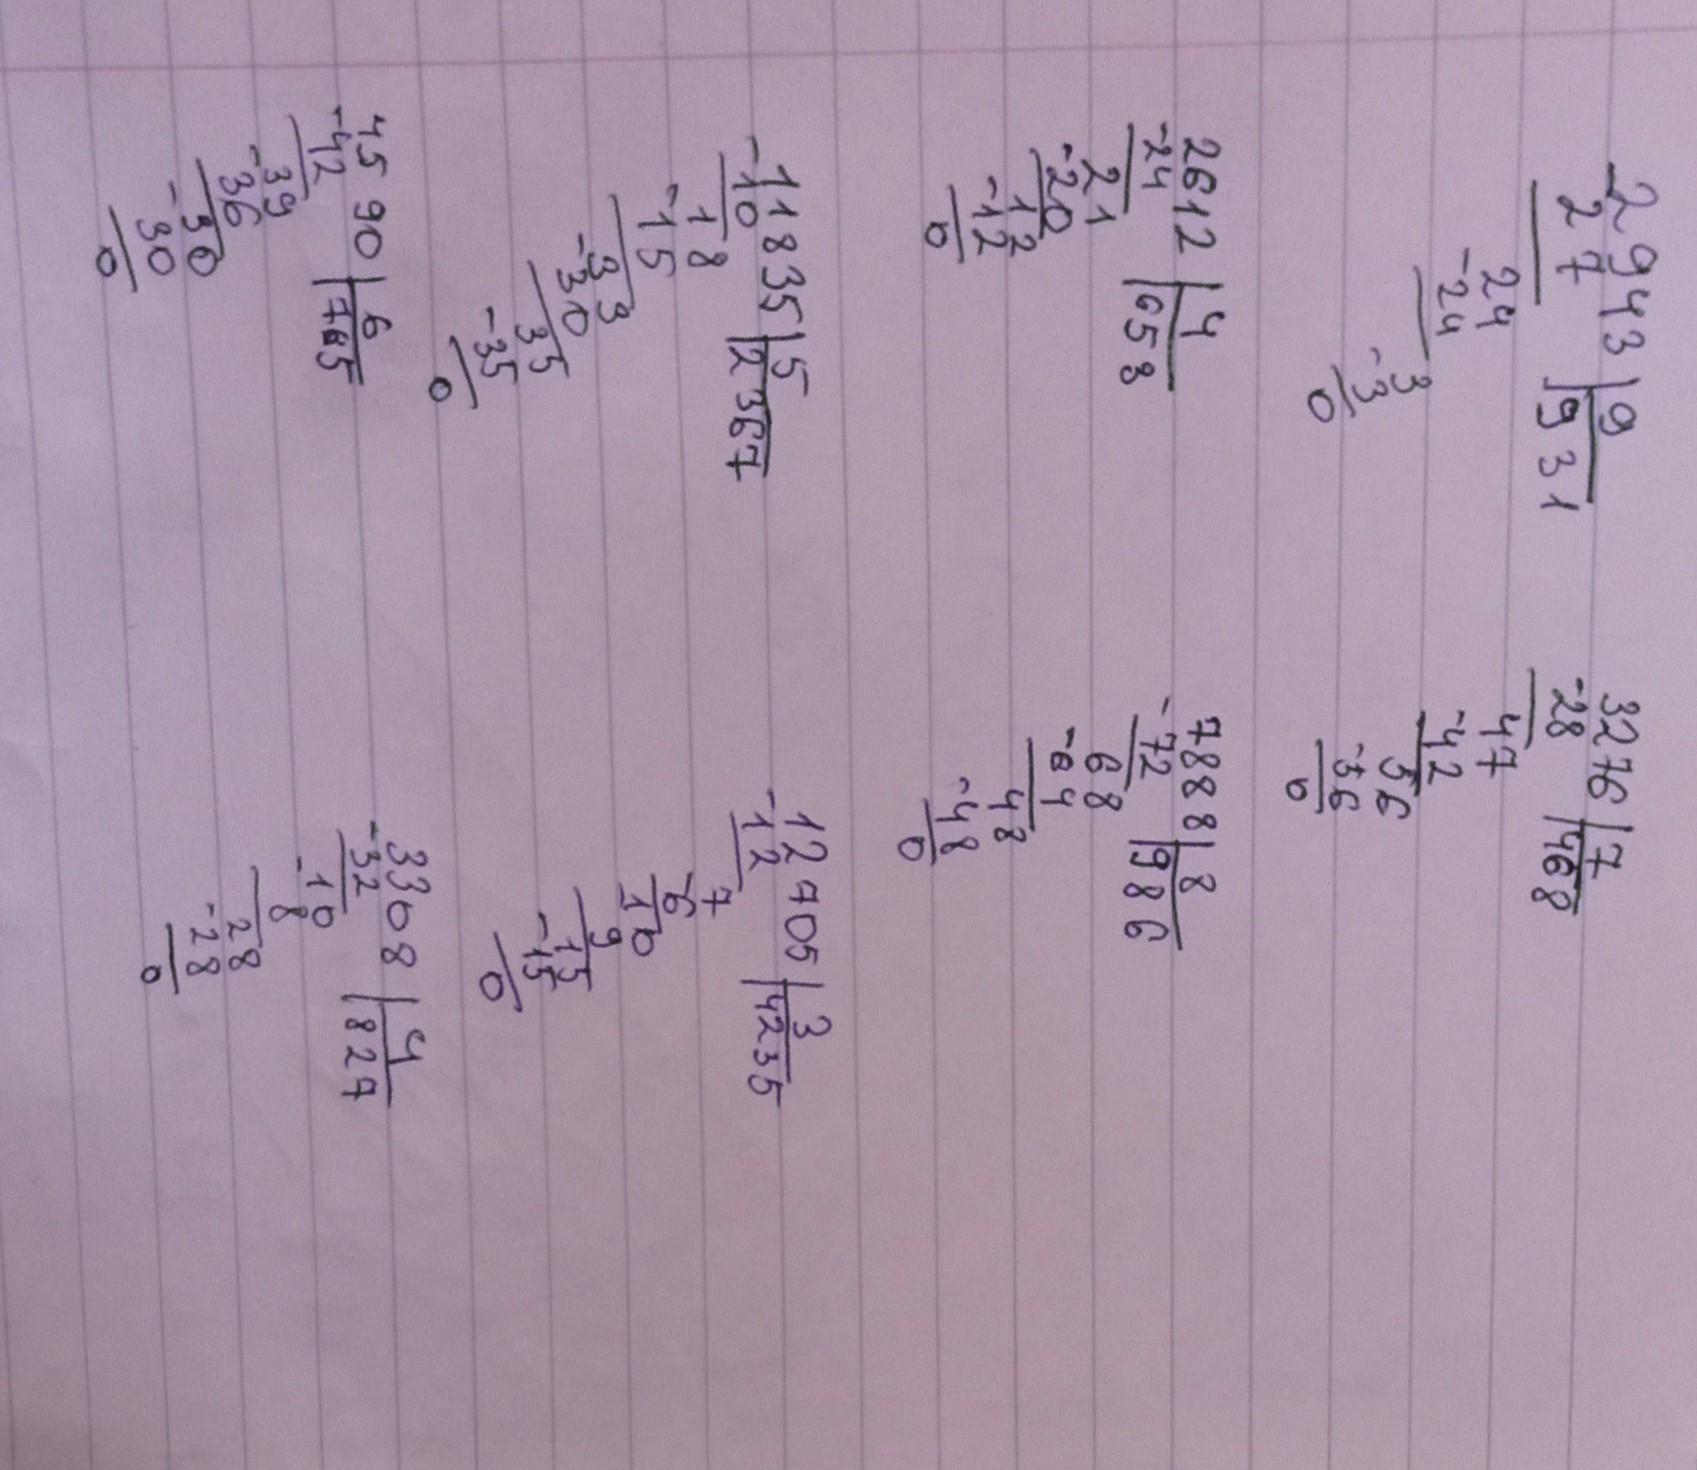 -2943|9
27 |931
24
-24
3
-3
0
3276|7
-28 |468
47
-42
56
-56
0
2612|4
-24 |653
21
-20
12
-12
0
7888|8
-72 |986
68
-64
48
-48
0
-11835|5
10 |2367
18
-15
33
-30
35
-35
0
12705|3
-12 |4235
7
-6
10
9
15
-15
0
4590|6
-42 |765
-39
36
-30
30
0
3308|4
-32 |827
-10
8
28
-28
0